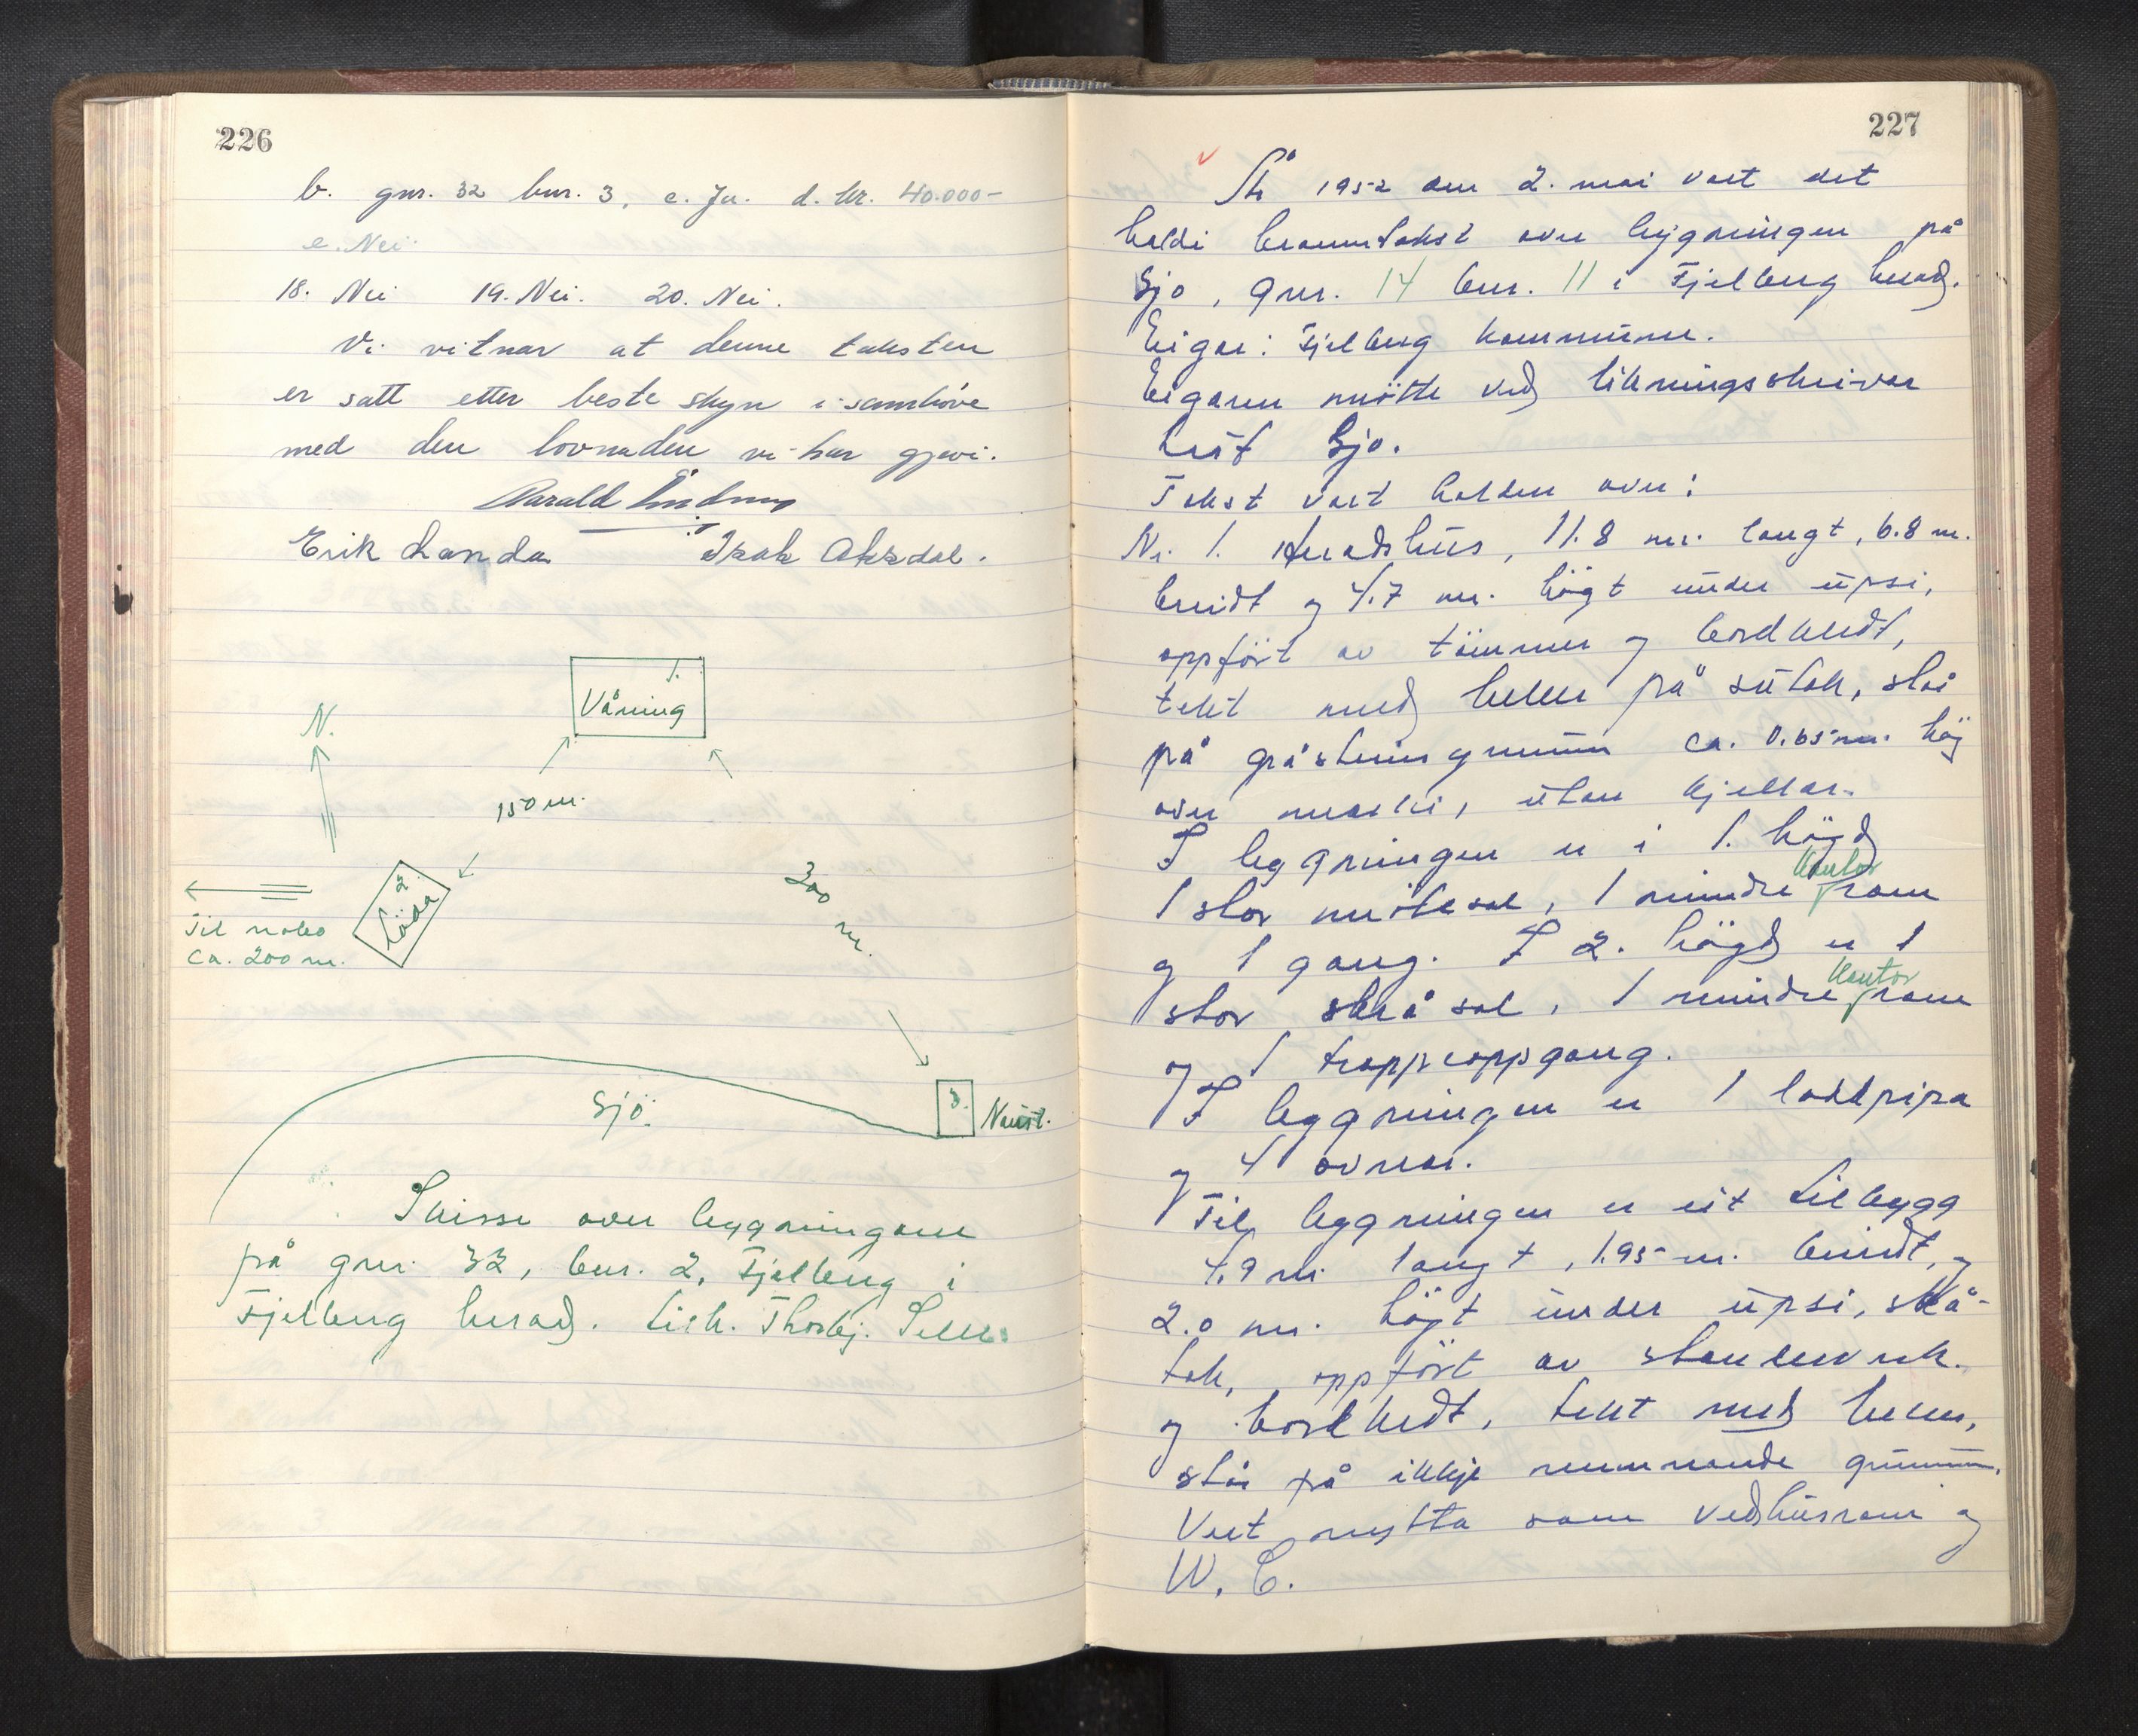 226
b. gnr. 32 bnr. 3, c. Ja. d. kr. 40.000-
e. Nei.
18. Nei 19. Nei. 20. Nei.
Vi vitnar at denne taksten
er satt etter beste skyn i samhöve
med den lovnaden vi har gjevi.
Erik Landa Isak Akkdal.
1.
Våning
N.
150 m.
2.
Löda
300 m.
Til nabo
ca. 200 m.
Sjö.
3. Naust.
Skisse over byggningane
på gnr. 32, bnr. 2, Fjelberg i
Fjelberg herad. Eigk. Thorbj.
227
År 1952 den 2. mai vart det
haldi branntakst over bygningen på
Sjo, gnr. 14 bnr. 11 i Fjelberg herad.
Eigar: Fjelberg kommune.
Eigaren møtte ved likningsskrivar
Leif Sjo.
Takst vart halden over:
Nr. 1. Heradshus, 11.8 m. langt, 6.8 m.
breidt og 4.7 m. högt under upsi,
oppfört av tömmer og bordkledt,
tekt med heller på sutak, står
på gråsteinsgrunn ca. 0.65 m. høg
over marki, utan kjellar.
I byggningen er i 1. högd
1 stor møtesal, 1 mindre kontor rom
og 1 gang. I 2. högd er 1
stor skråsal, 1 mindre kontor rom
og 1 trappeoppgang.
I byggningen er 1 loddpipa
og 4 ovnar.
Til byggningen er eit tilbygg
4.9 m. langt, 1.95 m. breidt, og
2.0 m. högt under upsi, skå-
tak, oppfört av stenderverk
og bordkledt, tekt med heller,
står på ikkje nemnande grunn.
Vert nytta som vedhusrom og
W. C.